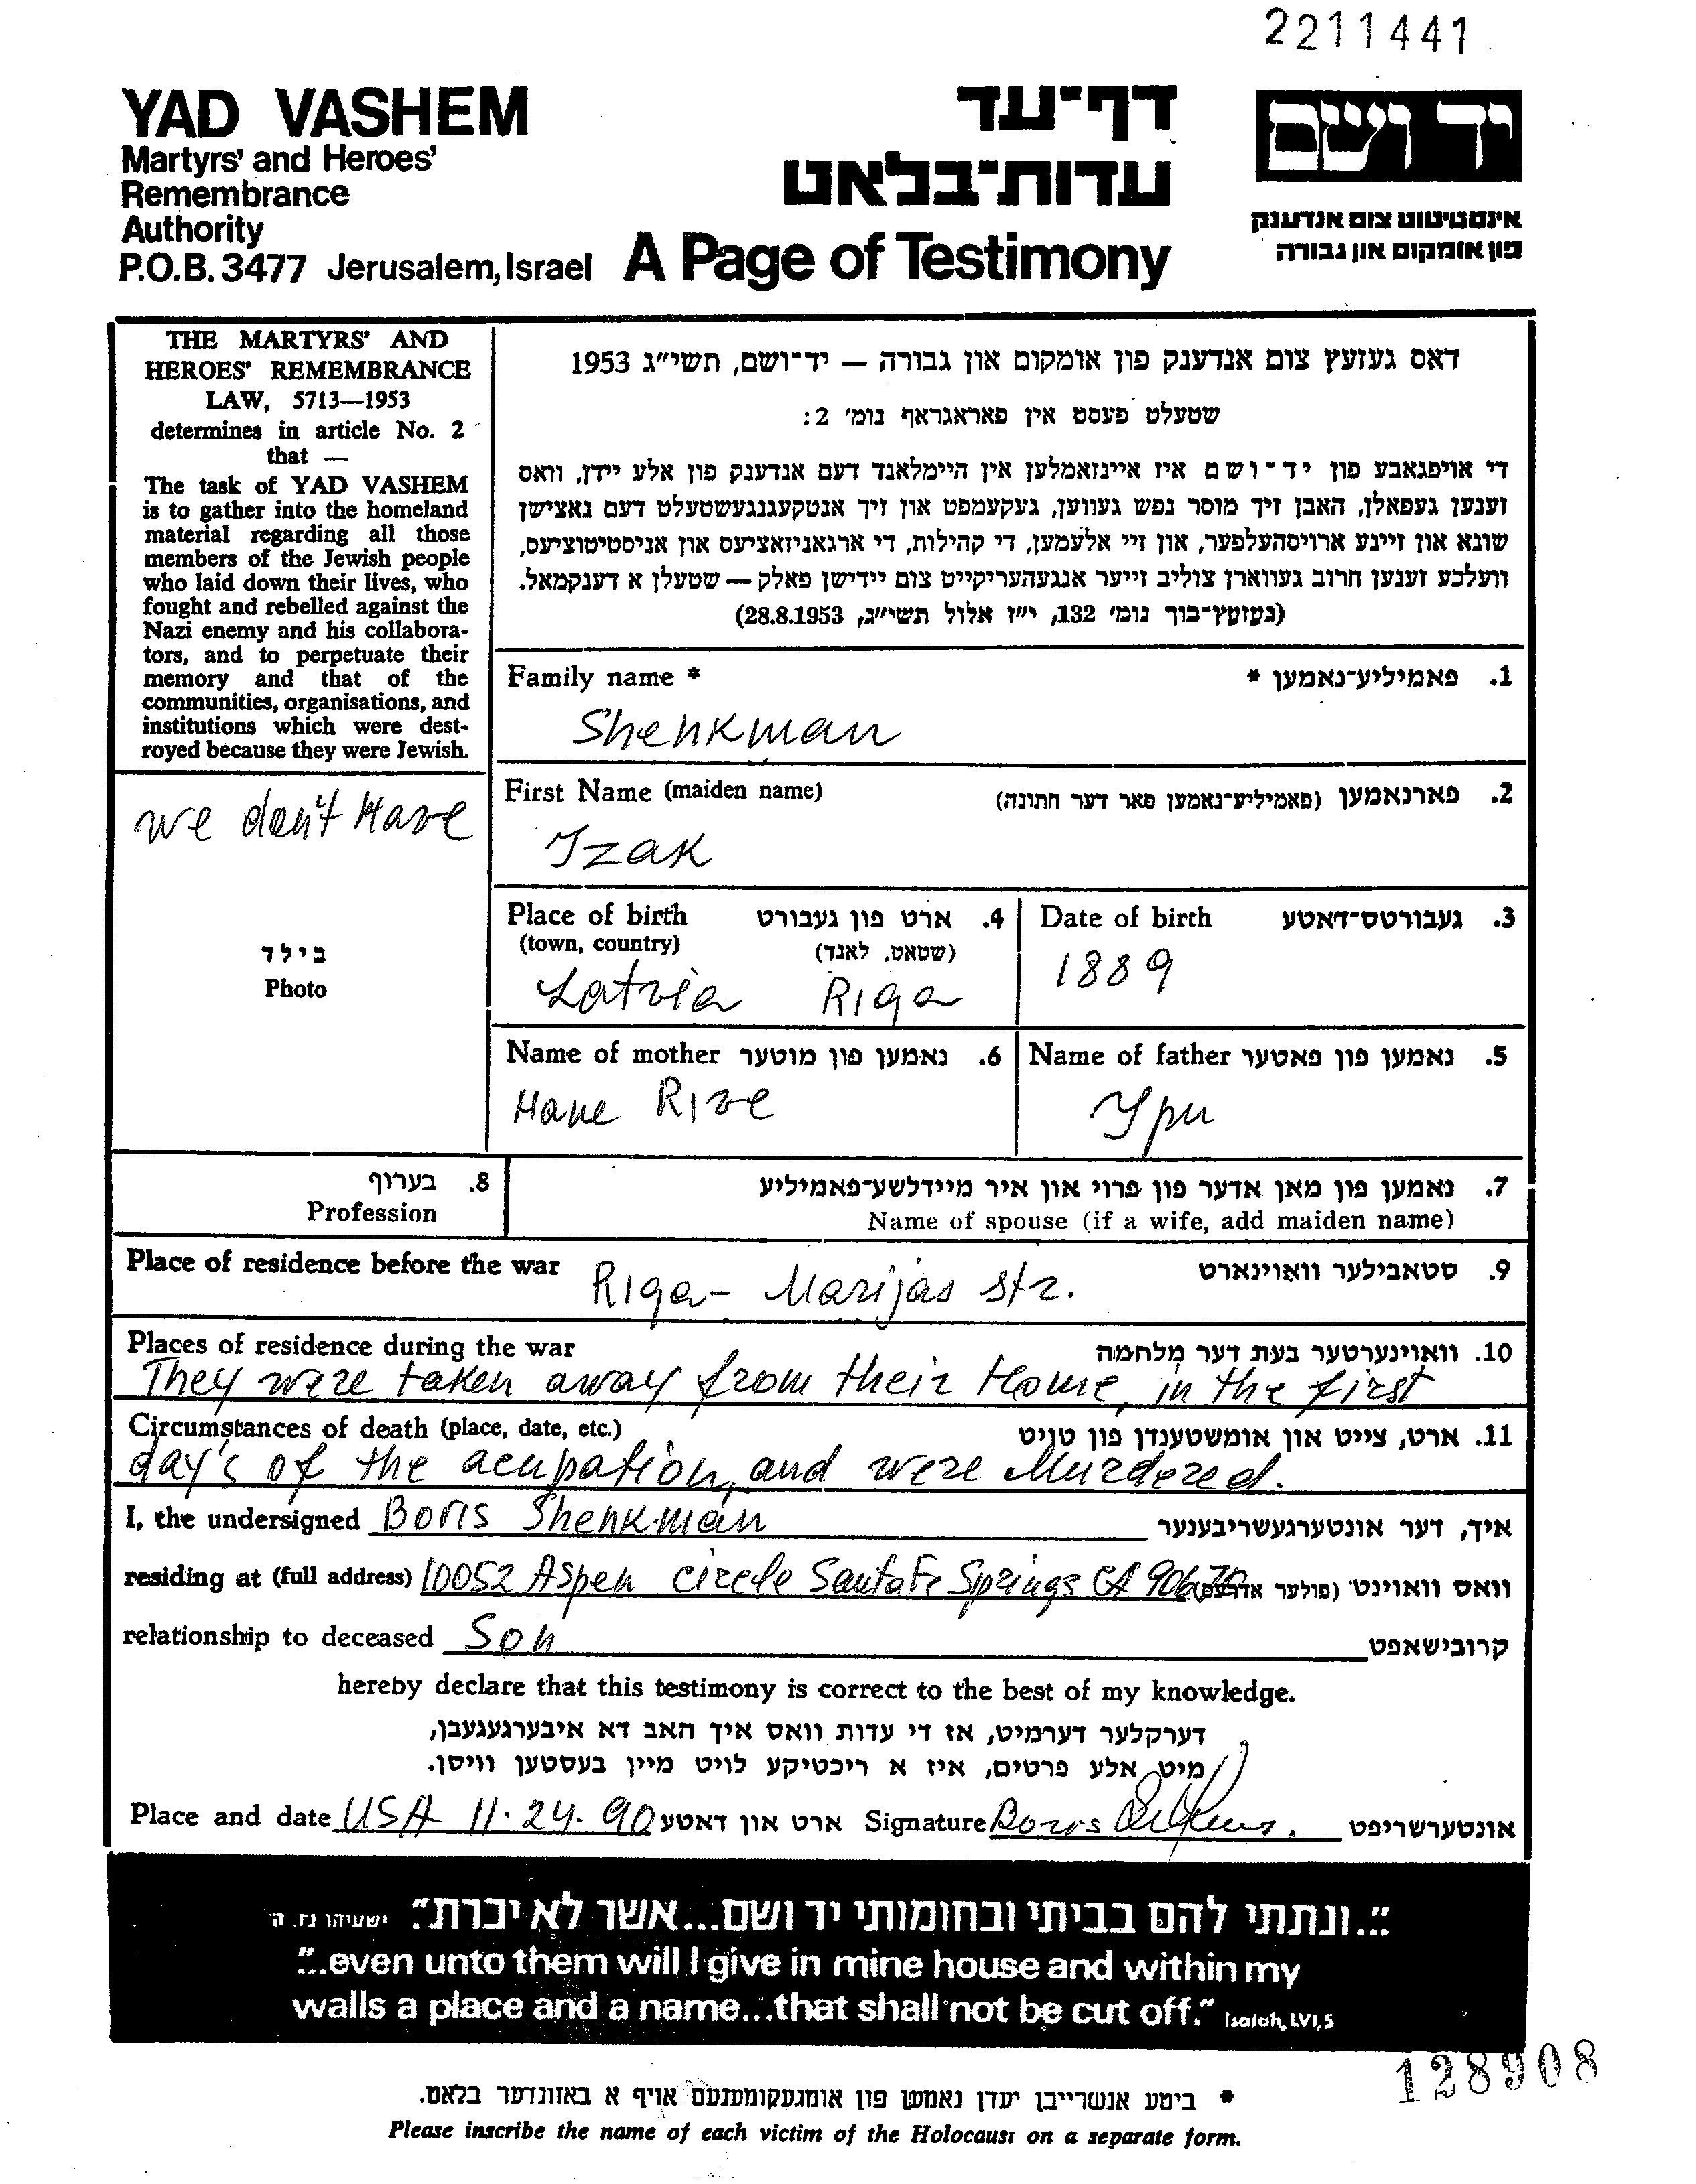 2211441
YAD VASHEM
Martyrs' and Heroes'
Remembrance
Authority
P.O.B. 3477 Jerusalem, Israel
דף־עד
עדות־בלאט
A Page of Testimony
יד ושם
אינסטיטוט צום אנדענק
פון אומקום און גבורה
THE MARTYRS' AND
HEROES' REMEMBRANCE
LAW, 5713—1953
determines in article No. 2
that —
The task of YAD VASHEM
is to gather into the homeland
material regarding all those
members of the Jewish people
who laid down their lives, who
fought and rebelled against the
Nazi enemy and his collabora-
tors, and to perpetuate their
memory and that of the
communities, organisations, and
institutions which were dest-
royed because they were Jewish.
דאס געזעץ צום אנדענק פון אומקום און גבורה — יד־ושם, תשי״ג 1953
שטעלט פעסט אין פאראגראף נומ׳ 2:
די אויפגאבע פון יד־ושם איז איינזאמלען אין היימלאנד דעם אנדענק פון אלע יידן, וואס
זענען געפאלן, האבן זיך מוסר נפש געווען, געקעמפט און זיך אנטקעגנגעשטעלט דעם נאצישן
שונא און זיינע ארויסהעלפער, און זיי אלעמען, די קהילות, די ארגאניזאציעס און אניסטיטוציעס,
וועלכע זענען חרוב געווארן צוליב זייער אנגעהעריקייט צום יידישן פאלק — שטעלן א דענקמאל.
(געזעץ־בוך נומ׳ 132, י״ז אלול תשי״ג, 28.8.1953)
we don't Have
בילד
Photo
Family name * פאמיליע־נאמען * .1
Shenkman
First Name (maiden name) פארנאמען (פאמיליע־נאמען פאר דער חתונה) .2
Izak
Place of birth ארט פון געבורט .4
(town, country) (שטאט, לאנד)
Latvia Riga
Date of birth געבורטס־דאטע .3
1889
Name of mother נאמען פון מוטער .6
Hane Rive
Name of father נאמען פון פאטער .5
בערוף .8
Profession
נאמען פון מאן אדער פון פרוי און איר מיידלשע־פאמיליע .7
Name of spouse (if a wife, add maiden name)
Place of residence before the war סטאבילער וואוינארט .9
Riga- Marijas str.
Places of residence during the war וואוינערטער בעת דער מלחמה .10
They were taken away from their Home, in the first
Circumstances of death (place, date, etc.) ארט, צייט און אומשטענדן פון טויט .11
day's of the acupation, and were Murdered.
I, the undersigned Boris Shenkman איך, דער אונטערגעשריבענער
residing at (full address) 10052 Aspen circle Santa Fe Springs CA 90670 וואס וואוינט (פולער אדרעס)
relationship to deceased Son קרובישאפט
hereby declare that this testimony is correct to the best of my knowledge.
דערקלער דערמיט, אז די עדות וואס איך האב דא איבערגעגעבן,
מיט אלע פרטים, איז א ריכטיקע לויט מיין בעסטען וויסן.
Place and date USA 11.24.90 ארט און דאטע Signature Boris אונטערשריפט
״...ונתתי להם בביתי ובחומותי יד ושם...אשר לא יכרת״. ישעיהו נו, ה׳
"...even unto them will I give in mine house and within my
walls a place and a name...that shall not be cut off." Isaiah, LVI, 5
128908
* ביטע אנשרייבן יעדן נאמען פון אומגעקומענעם אויף א באזונדער בלאט.
Please inscribe the name of each victim of the Holocaust on a separate form.